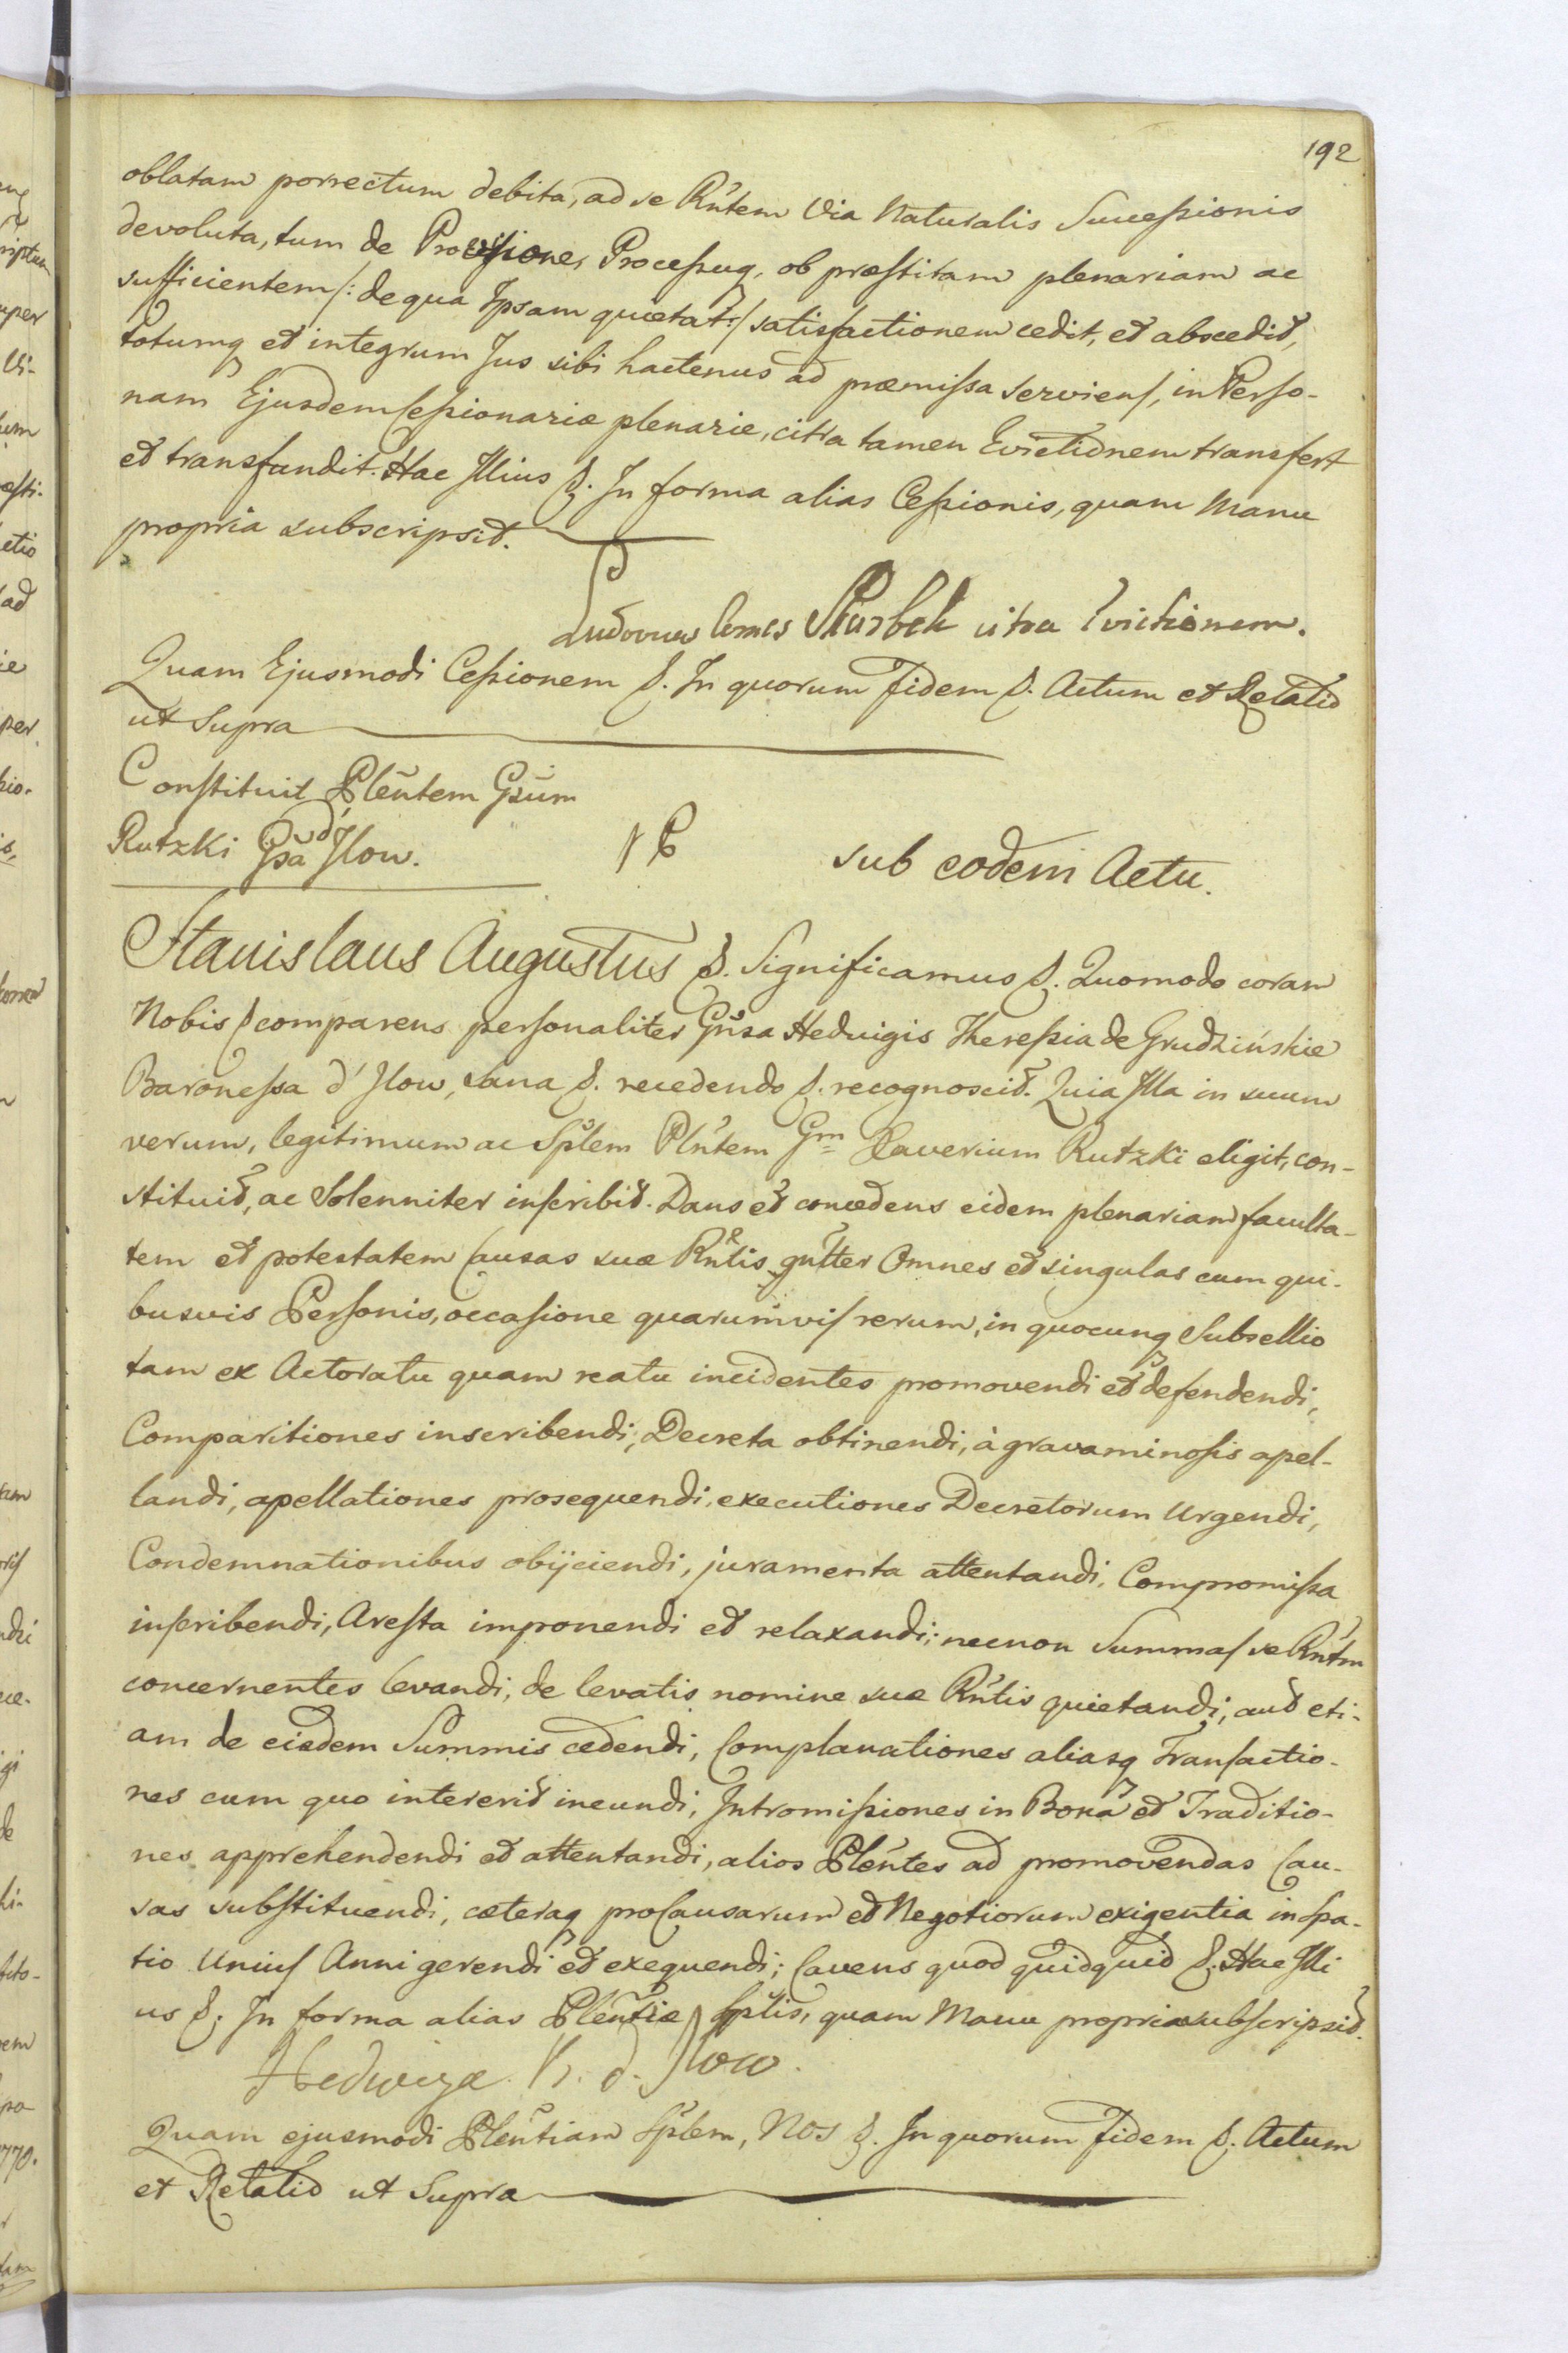 192
oblatam porrectum debita, ad se Rñtem Via Naturalis Successionis
devoluta, tum de Provisione, Processuq, ob præstitam plenariam ac
sufficientem /: de qua Ipsam quietat :/ satisfactionem cedit, et abscedit,
totumq et integrum Jus sibi hactenus ad præmissa serviens, in Perso-
nam Ejusdem Cessionariæ plenarie, citra tamen Evictionem transfert
et transfundit. Hac Illius &. In forma alias Cessionis, quam Manu
propria subscripsit.
Ludovicus Comes Skarbek citra Evictionem.
Quam Ejusmodi Cessionem &. In quorum Fidem &. Actum et Relatio
ut Supra
Constituit Plëntem Gsum
Rutzki Gsa d' Ilow.
sub eodem Actu.
Stanislaus Augustus &. Significamus &. Quomodo coram
Nobis & comparens personaliter Gñsa Hedvigis Theressia de Grudzińskie
Baronessa d' Ilow, sana &. recedendo &. recognoscit. Quia Illa in suum
verum, legitimum ac Splem Plñtem Gm Xaverium Rutzki eligit, con-
stituit, ac Solenniter inscribit. Dans et concedens eidem plenariam faculta-
tem et potestatem Causas suæ Rñtis gñtter Omnes et singulas cum qui-
busvis Personis, occasione quarumvis rerum, in quocunq Subsellio
tam ex Actoratu quam reatu incidentes promovendi et defendendi,
Comparitiones inscribendi, Decreta obtinendi, à gravaminosis apel-
landi, apellationes prosequendi, executiones Decretorum Urgendi,
Condemnationibus obijciendi, juramenta attentandi, Compromissa
inscribendi, Aresta imponendi et relaxandi; necnon Summas se Rñtm
concernentes levandi, de levatis nomine suæ Rñtis quietandi, aut eti-
am de eisdem Summis cedendi, Complanationes aliasq Transactio-
nes cum quo intererit ineundi, Intromissiones in Bona et Traditio-
nes apprehendendi et attentandi, alios Plentes ad promovendas Cau-
sas substituendi, cæteraq pro Causarum et Negotiorum exigentia in Spa-
tio Unius Anni gerendi et exequendi; Cavens quod quidquid &. Hac Illi
us &. In forma alias Plentiæ Splis, quam Manu propria subscripsit.
Hedwiga. B. d. Ilow.
Quam ejusmodi Plentiam Splem, Nos &. In quorum Fidem &. Actum
et Relatio ut Supra